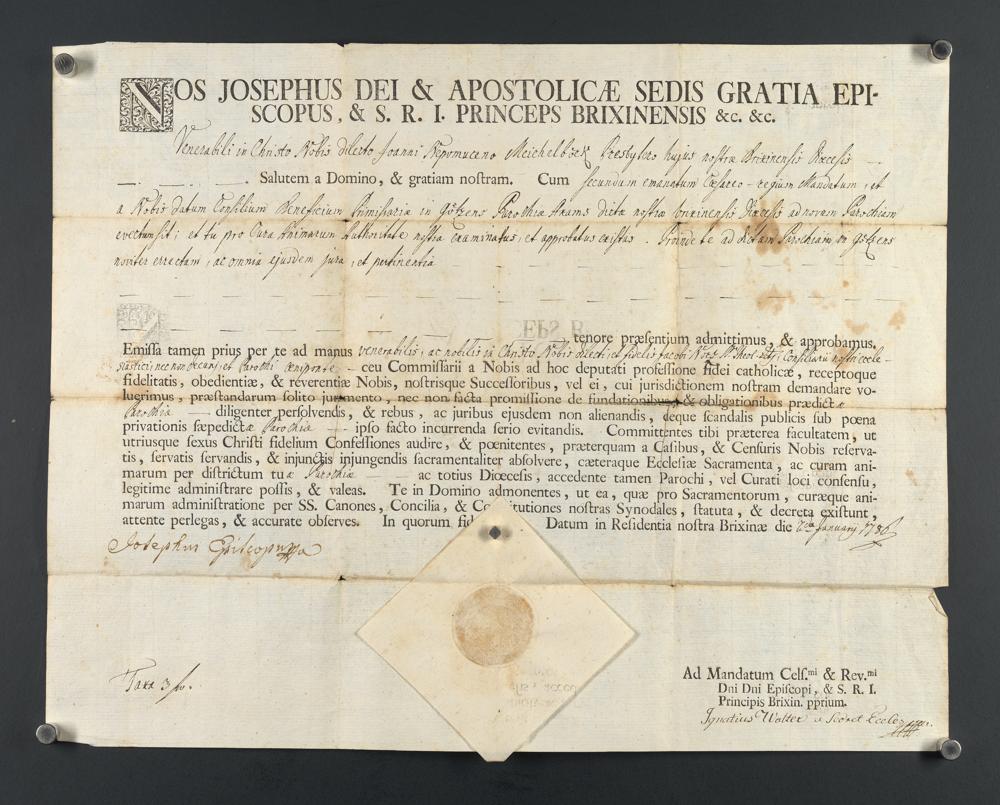 NOS JOSEPHUS DEI & APOSTOLICÆ SEDIS GRATIA EPI-
SCOPUS, & S. R. I. PRINCEPS BRIXINENSIS &c. &c.
Venerabili in Christo Nobis dilecto Joanni Nepomuceno Meichelböck Presbytero hujus nostræ Brixinensis Diœcesis
Salutem a Domino, & gratiam nostram. Cum secundum emanatum Cæsareo-regium Mandatum, et
a Nobis datum Consilium Beneficium Primissariæ in Götzens Parochiæ Axams dictæ nostræ Brixinensis Diœcesis ad novam Parochiam
evectum sit; et tu pro Cura Animarum Authoritate nostra examinatus, et approbatus existas. Proinde te ad dictam Parochiam in Götzens
noviter erectam, ac omnia ejusdem jura, et pertinentia
tenore præsentium admittimus, & approbamus.
Emissa tamen prius per te ad manus venerabilis, ac nobilis in Christo Nobis dilecti, et fidelis Jacobi Consiliarii nostri eccle-
siastici, nec non Decani, et Parochi ceu Commissarii a Nobis ad hoc deputati professione fidei catholicæ, receptoque
fidelitatis, obedientiæ, & reverentiæ Nobis, nostrisque Successoribus, vel ei, cui jurisdictionem nostram demandare vo-
luerimus, præstandarum solito juramento, nec non facta promissione de fundationibus, & obligationibus prædictæ
Parochiæ diligenter persolvendis, & rebus, ac juribus ejusdem non alienandis, deque scandalis publicis sub pœna
privationis sæpedictæ Parochiæ ipso facto incurrenda serio evitandis. Committentes tibi præterea facultatem, ut
utriusque sexus Christi fidelium Confessiones audire, & pœnitentes, præterquam a Casibus, & Censuris Nobis reserva-
tis, servatis servandis, & injunctis injungendis sacramentaliter absolvere, cæteraque Ecclesiæ Sacramenta, ac curam ani-
marum per districtum tuæ Parochiæ ac totius Diœcesis, accedente tamen Parochi, vel Curati loci consensu,
legitime administrare possis, & valeas. Te in Domino admonentes, ut ea, quæ pro Sacramentorum, curæque ani-
marum administratione per SS. Canones, Concilia, & Constitutiones nostras Synodales, statuta, & decreta existunt,
attente perlegas, & accurate observes. In quorum fid Datum in Residentia nostra Brixinæ die January 1786
Josephus Episcopus
Taxa 3 fl.
Ad Mandatum Cels.mi & Rev.mi
Dni Dni Episcopi, & S. R. I.
Principis Brixin. pprium.
Ignatius Wolter